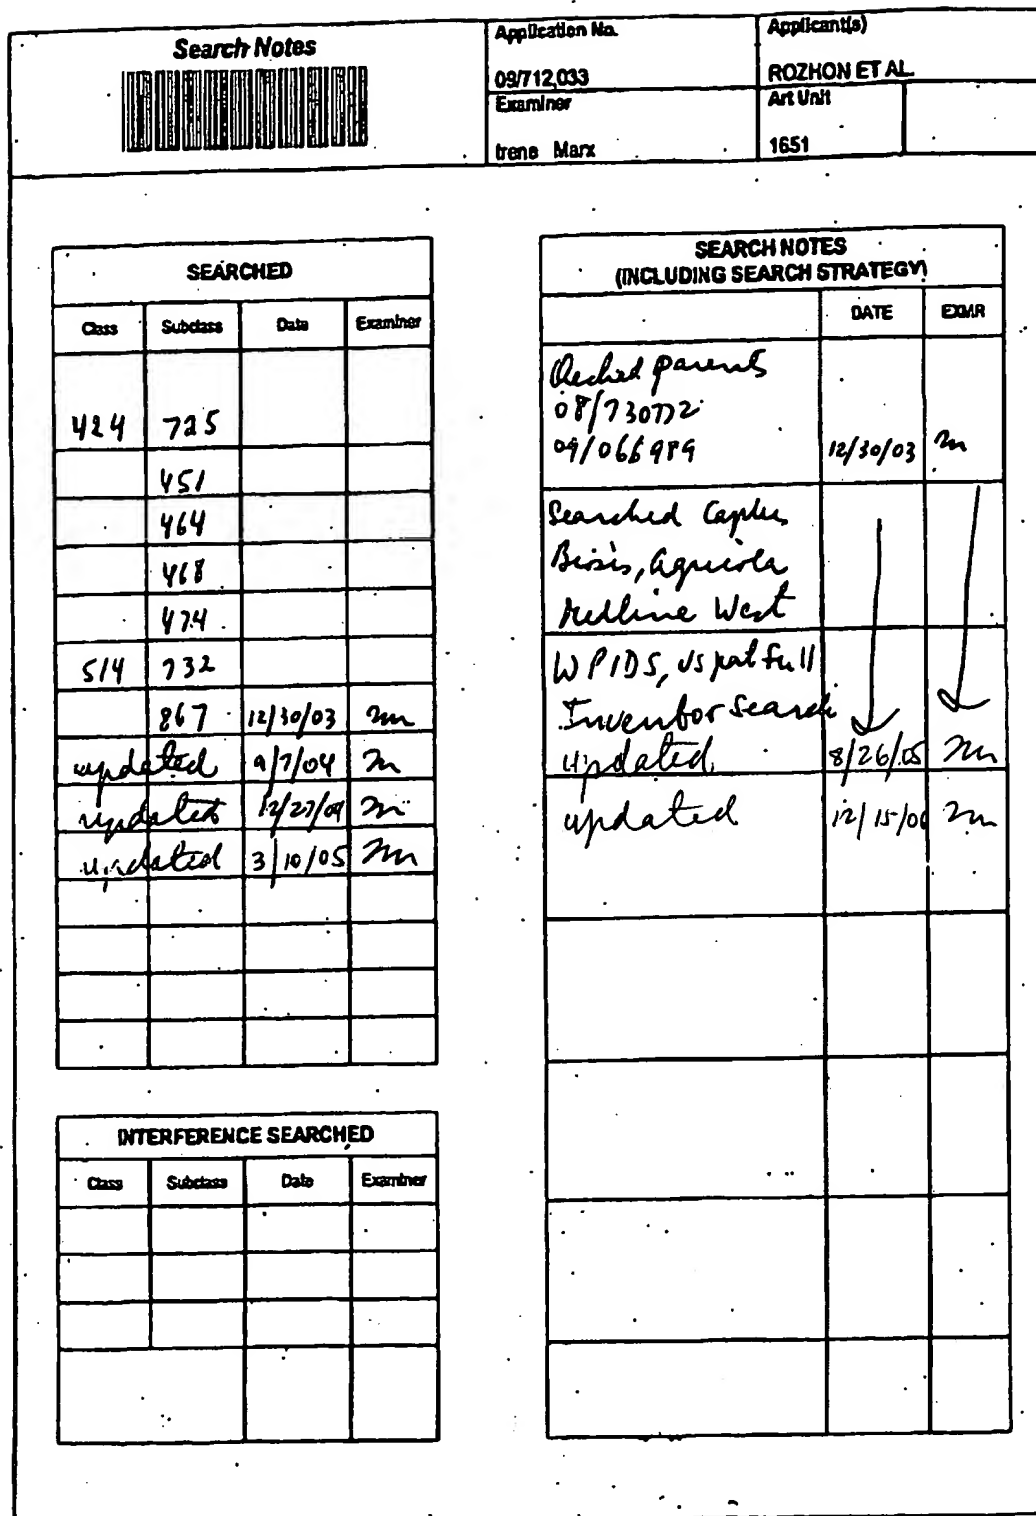 Search Notes
Application No.
09/712,033
Applicant(s)
ROZHON ET AL.
Examiner
Irene Marx
Art Unit
1651
SEARCHED
Class Subclass Date Examiner
424 725
451
464
468
474
514 732
867 12/30/03 m
updated 9/7/04 m
updated 12/27/04 m
updated 3/10/05 m
INTERFERENCE SEARCHED
Class Subclass Date Examiner
SEARCH NOTES
(INCLUDING SEARCH STRATEGY)
DATE EXMR
parents
08/730772
09/066989 12/30/03 m
Searched Caplus
Biosis, Agricola
Medline West
WPIDS, uspatfull
Inventor search
updated 8/26/05 m
updated 12/15/06 m